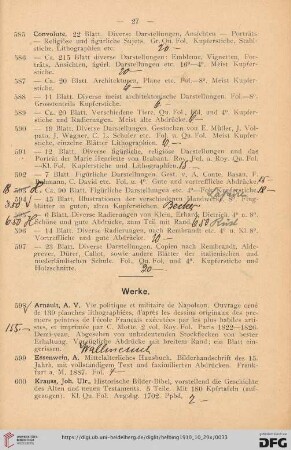 — 27 —
585 Convolute. 22 Blatt. Diverse Darstellungen, Ansichten — Porträts
— Religiöse und figürliche Sujets. Gr. Qu. Fol. Kupferstiche, Stahl-
stiche, Lithographien etc. 20 -
586 — Ca. 215 Blatt diverse Darstellungen: Embleme, Vignetten, Por-
träts, Ansichten, figürl. Darstellungen etc. 4°. Meist Kupfer-
stiche. 20 -
587 — Ca. 20 Blatt Architekturen, Pläne etc. Fol.—8°. Meist Kupfer-
stiche. 6 -
588 — 11 Blatt diverse Darstellungen, meist figürliche. Fol.—8°.
Grossenteils Kupferstiche. 6 -
589 — Ca. 20 Blatt. Verschiedene Tiere. Qu. Fol. und 4°. Kupfer-
stiche und Lithographien.
590 — 19 Blatt. Diverse Darstellungen. Gestochen von T. Müller, J. Vol-
pato, J. Wagner, C. J. Schuler etc. Fol. u. Qu. Fol. Meist Kupfer-
stiche, einzelne Blätter Lithographien.
591 — 12 Blatt. Diverse figürliche Darstellungen und Tierstücke
das Porträt der Marie Henriette von Brabant. Roy. Fol. u. Roy. Qu. Fol.
—Kl. Fol. Kupferstiche und Lithographien. 15 -
592 — 7 Blatt. Figürliche Darstellungen. Gest. v. A. Conte, Rasan, F.
Dolmann, C. David etc. Fol. u. 4°. Gute und vortreffliche Abdrücke. 15 -
593 — Ca. 90 Blatt. Figürliche Darstellungen etc. 18 -
594 — 15 Blatt. Illustrationen der verschiedenen
blätter in guten, alten Kupferstichen.
595 — 6 Blatt. Diverse Radierungen von Klein, Erhard, Dietrich. 4° u. 8°.
Schöne und gute Abdrücke, zum Teil mit Rand. 6 50
596 — 14 Blatt. Diverse Radierungen, nach verschied. Qu. Fol. u. 4°.
Vortreffliche und gute Abdrücke. 10 -
597 — 26 Blatt. Diverse Darstellungen. Copien nach Rembrandt, Alde-
grever, Dürer, Callot, sowie andere Blätter der italienischen und
niederländischen Schule. Fol., Qu. Fol. und 4°. Kupferstiche und
Holzschnitte. 20 -
Werke.
598 Arnault, A. V. Vie politique et militaire de Napoleon. Ouvrage orné
de 130 planches lithographiées, d'après les dessins originaux des
premiers peintres de l'école Français exécutées par les plus habiles
artistes, et imprimées par C. Motte. 2 vol. Roy. Fol. Paris 1822—1826.
Demi-veau. Abgesehen von unbedeutenden Stockflecken von bester
Erhaltung. Vorzügliche Abdrücke mit breitem Rand; ein Blatt ein-
gerissen.
599 Essenwein, A. Mittelalterliches Hausbuch. Bilderhandschrift des 15.
Jahrh. mit vollständigem Text und faximilierten Abdrücken. Frank-
furt a. M. 1887. Fol. 4 -
600 Krauss, Joh. Ulr. Historische Bilder-Bibel, vorstellend die Geschichte
des Alten und neuen Testaments. 5 Teile. Mit 180 Kupfertafeln (auf-
gezogen). Kl. Qu. Fol. Augsbg. 1702. Ppbd. 2 -
155 -
http://digi.ub.uni-heidelberg.de/diglit/helbing1910_10_29a/0033